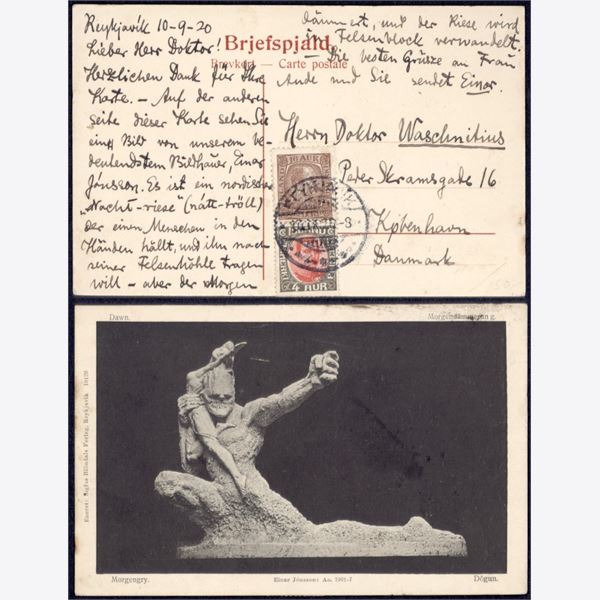 Reykjavik 10-9-20
Lieber Herr Doktor!
Herzlichen Dank für Ihre
Karte. – Auf der anderen
Seite dieser Karte sehen Sie
ein Bild von unserem be-
deutendstem Bildhauer, Einar
Jónsson. Es ist ein nordischer
„Nacht-riese" (nátt-tröll)
der einen Menschen in den
Händen hällt, und ihn nach
seiner Felsenhöhle tragen
will – aber der Morgen
dämmert, und der Riese wird
in Felsenblock verwandelt.
– Die besten Grüsze an Frau
Aude und Sie sendet Einar.
Brjefspjald
Brevkort — Carte postale
Herrn Doktor Waschnitius
Peter Skramsgade 16
København
Danmark
10 AUR
4 AUR
REYKJAVIK
150
Dawn.
Morgendämmerung.
Einar Jónsson: Ao. 1901-?
Morgengry.
Dögun.